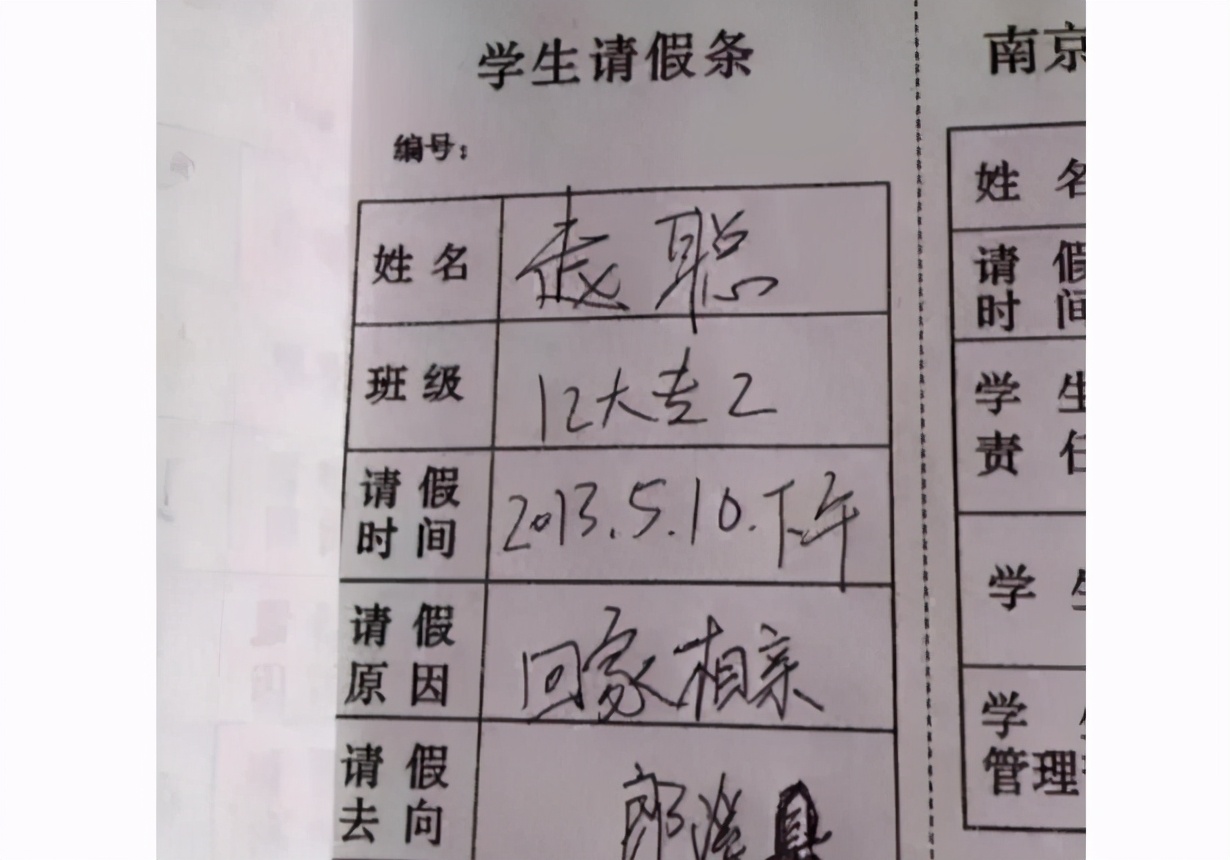 学生请假条
编号：
姓名 赵聪
班级 12大专2
请假时间 2013.5.10.下午
请假原因 回家相亲
请假去向 郎溪县
南京
姓名
请假时间
学生责任
学
学
管理